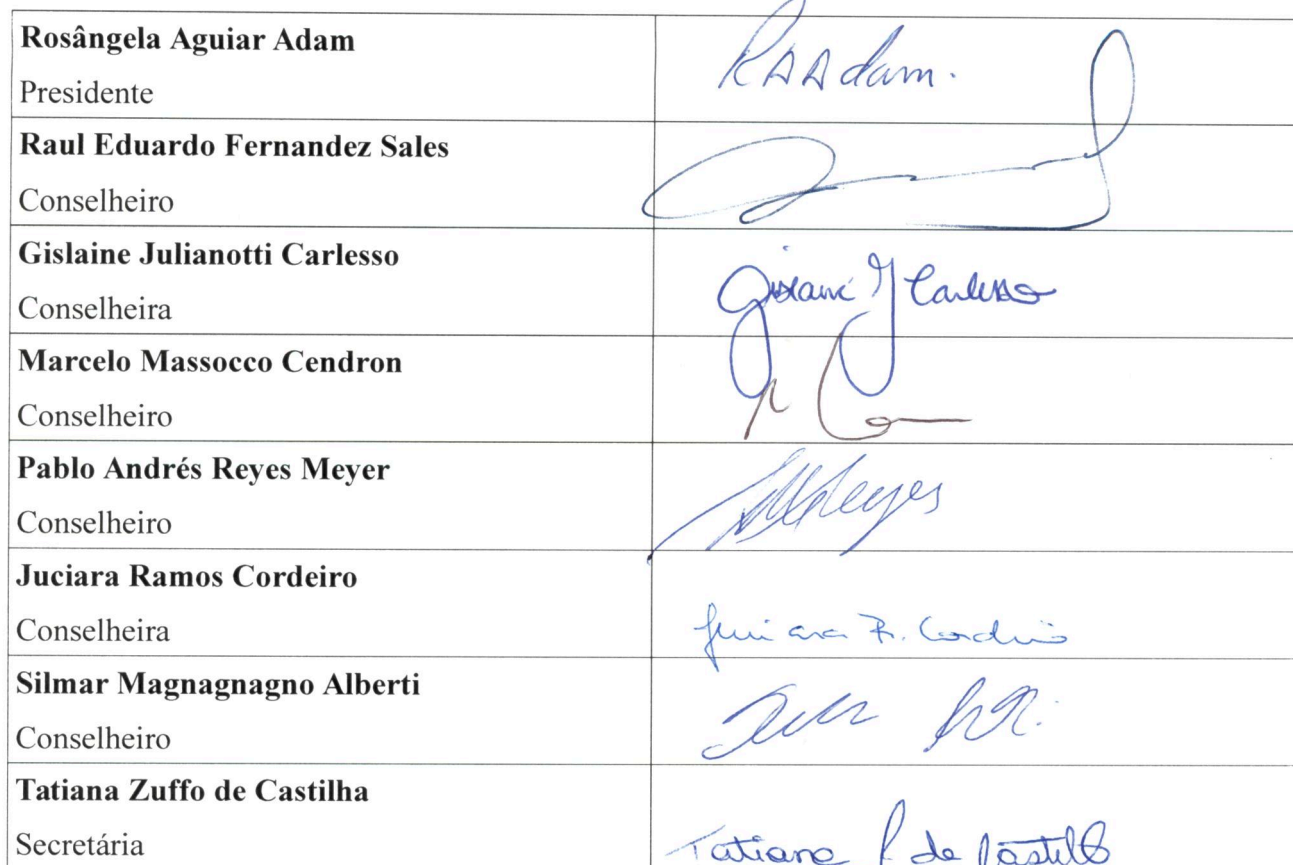 Rosângela Aguiar Adam
Presidente
RAAdam.
Raul Eduardo Fernandez Sales
Conselheiro
Gislaine Julianotti Carlesso
Conselheira
Gislaine J Carlesso
Marcelo Massocco Cendron
Conselheiro
Pablo Andrés Reyes Meyer
Conselheiro
Reyes
Juciara Ramos Cordeiro
Conselheira
Juciara R. Cordeiro
Silmar Magnagnagno Alberti
Conselheiro
Tatiana Zuffo de Castilha
Secretária
Tatiana Z de Castilha